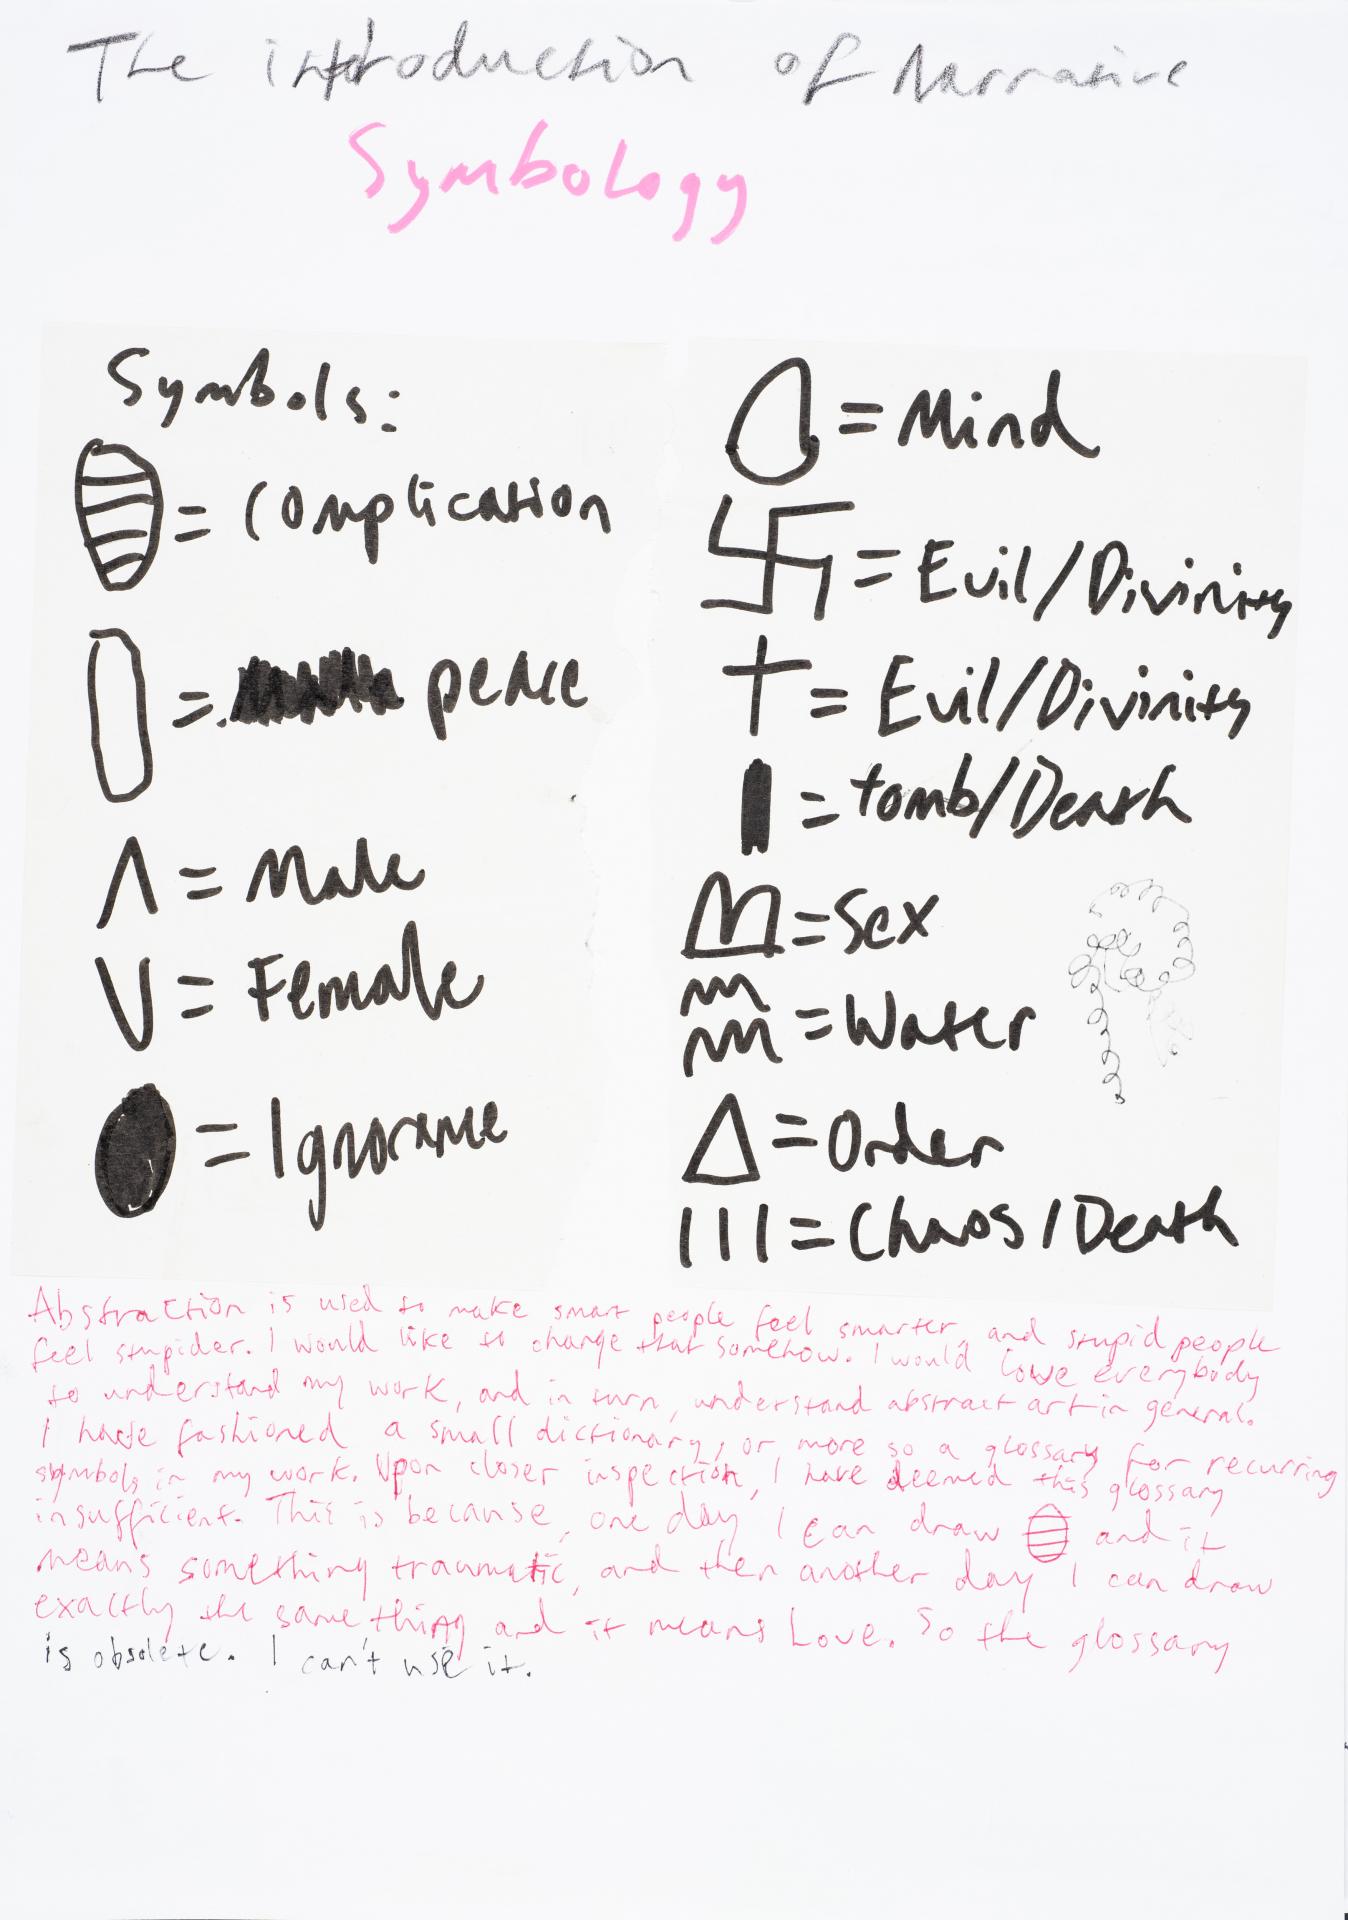 The introduction of Narrative
Symbology
Symbols:
= Complication
= peace
Λ = Male
V = Female
= Ignorance
= Mind
卐 = Evil/Divinity
† = Evil/Divinity
= tomb/Death
= Sex
= Water
Δ = Order
III = Chaos/Death
Abstraction is used to make smart people feel smarter, and stupid people
feel stupider. I would like to change that somehow. I would love everybody
to understand my work, and in turn, understand abstract art in general.
I have fashioned a small dictionary, or more so a glossary for recurring
symbols in my work. Upon closer inspection, I have deemed this glossary
insufficient. This is because, one day I can draw and it
means something traumatic, and then another day I can draw
exactly the same thing and it means Love. So the glossary
is obsolete. I can't use it.